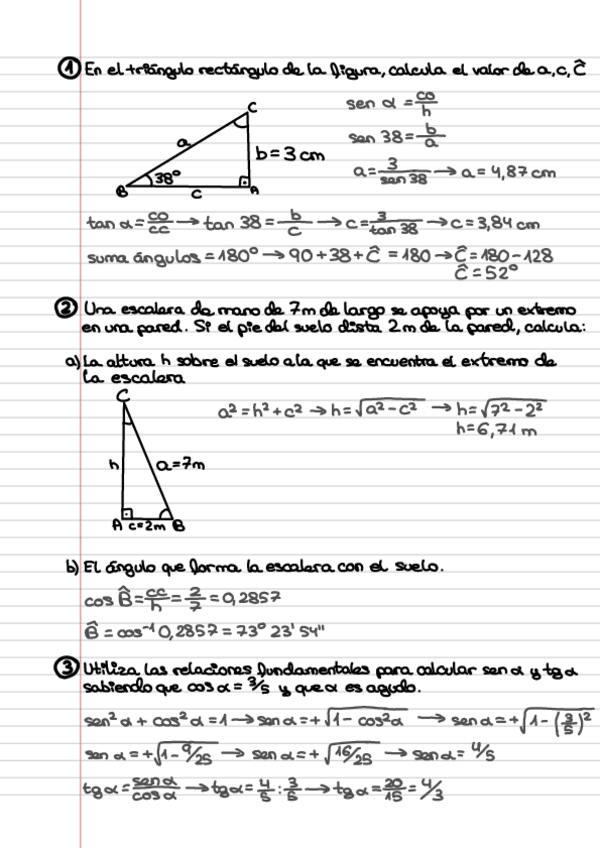 ① En el triángulo rectángulo de la figura, calcula el valor de a, c, Ĉ
sen α = co/h
sen 38 = b/a
a = 3/sen 38 → a = 4,87 cm
C
a
b = 3 cm
38°
B
c
A
tan α = co/cc → tan 38 = b/c → c = 3/tan 38 → c = 3,84 cm
suma ángulos = 180° → 90 + 38 + Ĉ = 180 → Ĉ = 180 - 128
Ĉ = 52°
② Una escalera de mano de 7m de largo se apoya por un extremo
en una pared. Si el pie del suelo dista 2m de la pared, calcula:
a) La altura h sobre el suelo a la que se encuentra el extremo de
la escalera
C
a² = h² + c² → h = √(a² - c²) → h = √(7² - 2²)
h = 6,71 m
h
a = 7m
A c = 2m B
b) El ángulo que forma la escalera con el suelo.
cos B̂ = cc/h = 2/7 = 0,2857
B̂ = cos⁻¹ 0,2857 = 73° 23' 54"
③ Utiliza las relaciones fundamentales para calcular sen α y tg α
sabiendo que cos α = 3/5 y que α es agudo.
sen² α + cos² α = 1 → sen α = +√(1 - cos² α) → sen α = +√(1 - (3/5)²)
sen α = +√(1 - 9/25) → sen α = +√(16/25) → sen α = 4/5
tg α = sen α/cos α → tg α = 4/5 : 3/5 → tg α = 20/15 = 4/3